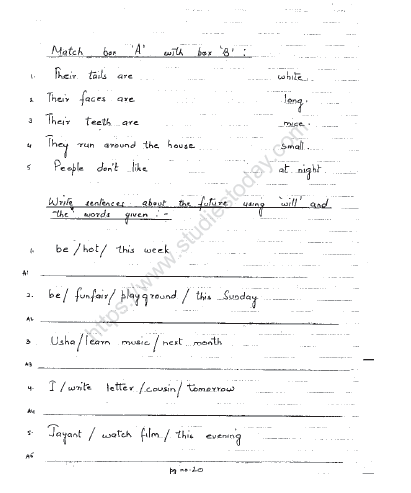 Match box 'A' with box 'B' :
1. Their tails are white.
2 Their faces are long.
3 Their teeth are mice.
4 They run around the house small.
5 People don't like at night.
Write sentences about the future using 'will' and
the words given :-
1. be / hot / this week
A1
2. be / funfair / playground / this Sunday
A2
3. Usha / learn music / next month
A3
4. I / write letter / cousin / tomorrow
A4
5. Jayant / watch film / this evening
A5
https://www.studiestoday.com